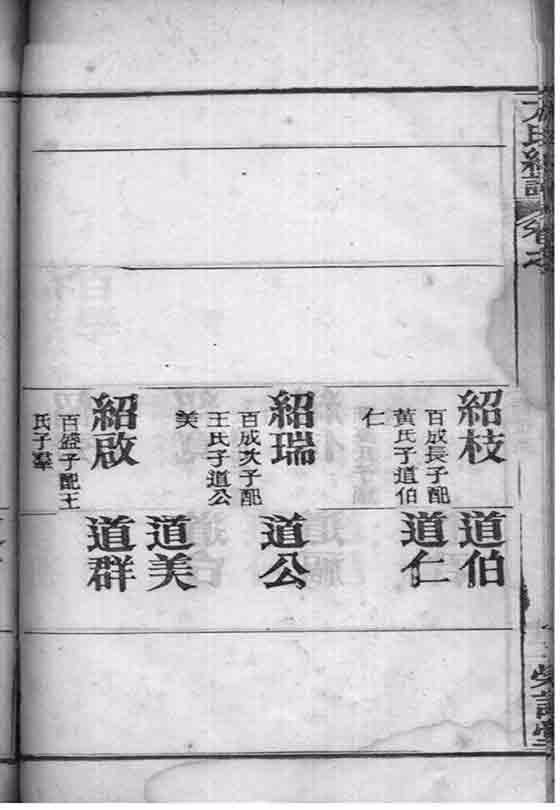 方氏紹譜
卷之
紹枝
百成長子配
黃氏子道伯
仁
紹瑞
百成次子配
王氏子道公
美
紹啟
百盛子配王
氏子羣
道伯
道仁
道公
道美
道群